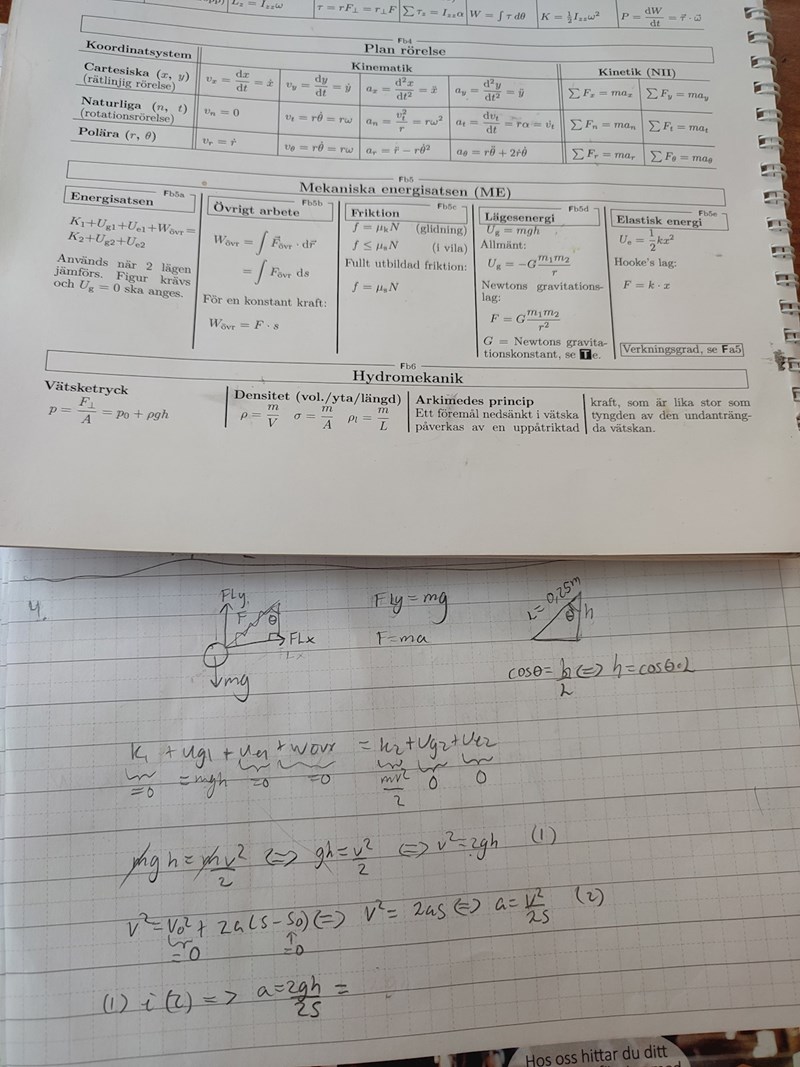 L_z = I_zz ω
τ = rF⊥ = r⊥F
∑τ_z = I_zz α
W = ∫ τ dθ
K = ½ I_zz ω²
P = dW/dt = τ⃗ · ω⃗
Fb4
Plan rörelse
Koordinatsystem
Kinematik
Kinetik (NII)
Cartesiska (x, y)
(rätlinjig rörelse)
v_x = dx/dt = ẋ
v_y = dy/dt = ẏ
a_x = d²x/dt² = ẍ
a_y = d²y/dt² = ÿ
∑F_x = ma_x
∑F_y = ma_y
Naturliga (n, t)
(rotationsrörelse)
v_n = 0
v_t = rθ̇ = rω
a_n = v_t²/r = rω²
a_t = dv_t/dt = rα = v̇_t
∑F_n = ma_n
∑F_t = ma_t
Polära (r, θ)
v_r = ṙ
v_θ = rθ̇ = rω
a_r = r̈ − rθ̇²
a_θ = rθ̈ + 2ṙθ̇
∑F_r = ma_r
∑F_θ = ma_θ
Fb5
Mekaniska energisatsen (ME)
Energisatsen Fb5a
K₁+U_g1+U_e1+W_övr =
K₂+U_g2+U_e2
Används när 2 lägen
jämförs. Figur krävs
och U_g = 0 ska anges.
Övrigt arbete Fb5b
W_övr = ∫ F⃗_övr · dr⃗
= ∫ F_övr ds
För en konstant kraft:
W_övr = F · s
Friktion Fb5c
f = μ_k N (glidning)
f ≤ μ_s N (i vila)
Fullt utbildad friktion:
f = μ_s N
Lägesenergi Fb5d
U_g = mgh
Allmänt:
U_g = −G m₁m₂/r
Newtons gravitations-
lag:
F = G m₁m₂/r²
G = Newtons gravita-
tionskonstant, se Te.
Elastisk energi Fb5e
U_e = ½ kx²
Hooke's lag:
F = k · x
Verkningsgrad, se Fa5
Fb6
Hydromekanik
Vätsketryck
p = F⊥/A = p₀ + ρgh
Densitet (vol./yta/längd)
ρ = m/V σ = m/A ρ_l = m/L
Arkimedes princip
Ett föremål nedsänkt i vätska
påverkas av en uppåtriktad
kraft, som är lika stor som
tyngden av den undanträng-
da vätskan.
4.
FLy
F
θ
FLx
mg
Fly = mg
F = ma
L = 0,25m
θ
h
cosθ = h/L ⇔ h = cosθ·L
K₁ + Ug1 + Ue1 + Wövr = K₂ + Ug2 + Ue2
=0 =mgh =0 =0 mv²/2 0 0
mgh = mv²/2 ⇔ gh = v²/2 ⇔ v² = 2gh (1)
v² = v₀² + 2a(s − s₀) ⇔ v² = 2as ⇔ a = v²/2s (2)
=0 =0
(1) i (2) => a = 2gh/2s =
Hos oss hittar du ditt